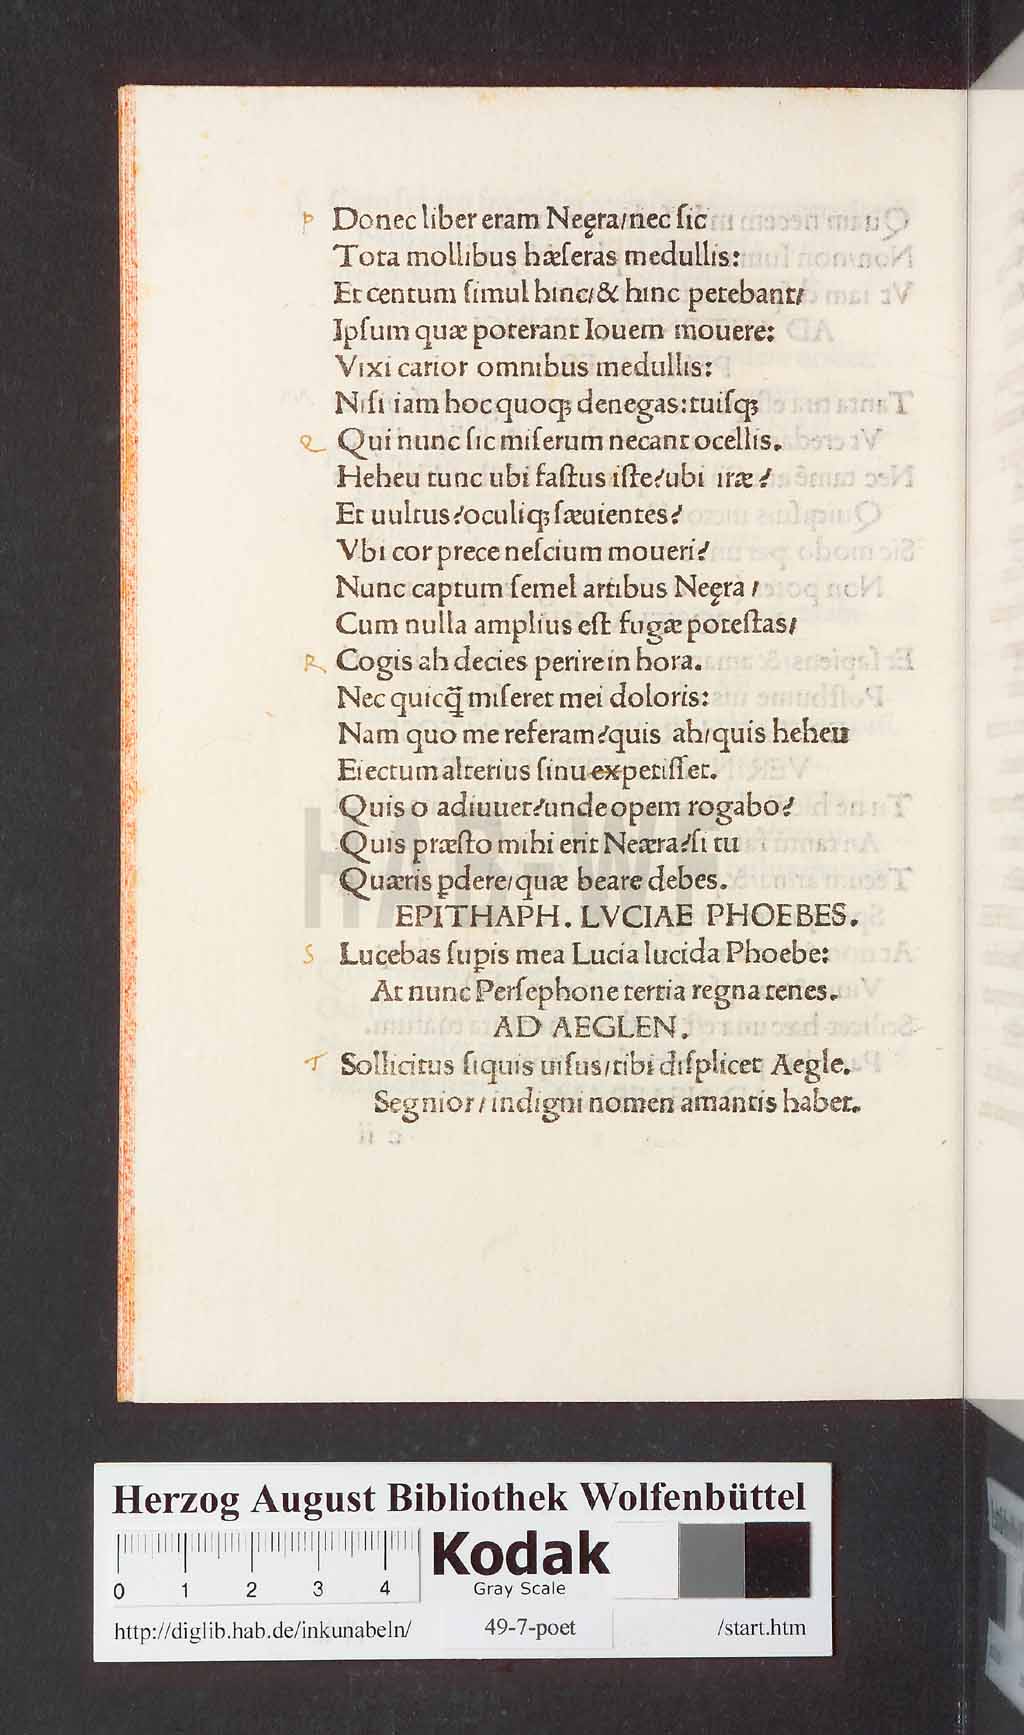 P Donec liber eram Neęra/nec ſic
Tota mollibus hæſeras medullis:
Et centum ſimul hinc/& hinc petebant/
Ipſum quæ poterant Iouem mouere:
Vixi carior omnibus medullis:
Niſi iam hoc quoqꝫ denegas:tuiſqꝫ
Q Qui nunc ſic miſerum necant ocellis.
Heheu tunc ubi faſtus iſte?ubi iræ?
Et uultus?oculiqꝫ ſæuientes?
Vbi cor prece neſcium moueri?
Nunc captum ſemel artibus Neęra /
Cum nulla amplius eſt fugæ poteſtas/
R Cogis ah decies perire in hora.
Nec quicq̃ miſeret mei doloris:
Nam quo me referam?quis ah/quis heheu
Eiectum alterius ſinu expetiſſet.
Quis o adiuuet?unde opem rogabo?
Quis præſto mihi erit Neæra?ſi tu
Quæris ꝑdere/quæ beare debes.
EPITHAPH. LVCIAE PHOEBES.
S Lucebas ſuꝑis mea Lucia lucida Phoebe:
At nunc Perſephone tertia regna tenes.
AD AEGLEN.
T Sollicitus ſiquis uiſus/tibi diſplicet Aegle.
Segnior/indigni nomen amantis habet.
HAB-WF
Herzog August Bibliothek Wolfenbüttel
Kodak
Gray Scale
0 1 2 3 4
http://diglib.hab.de/inkunabeln/ 49-7-poet /start.htm